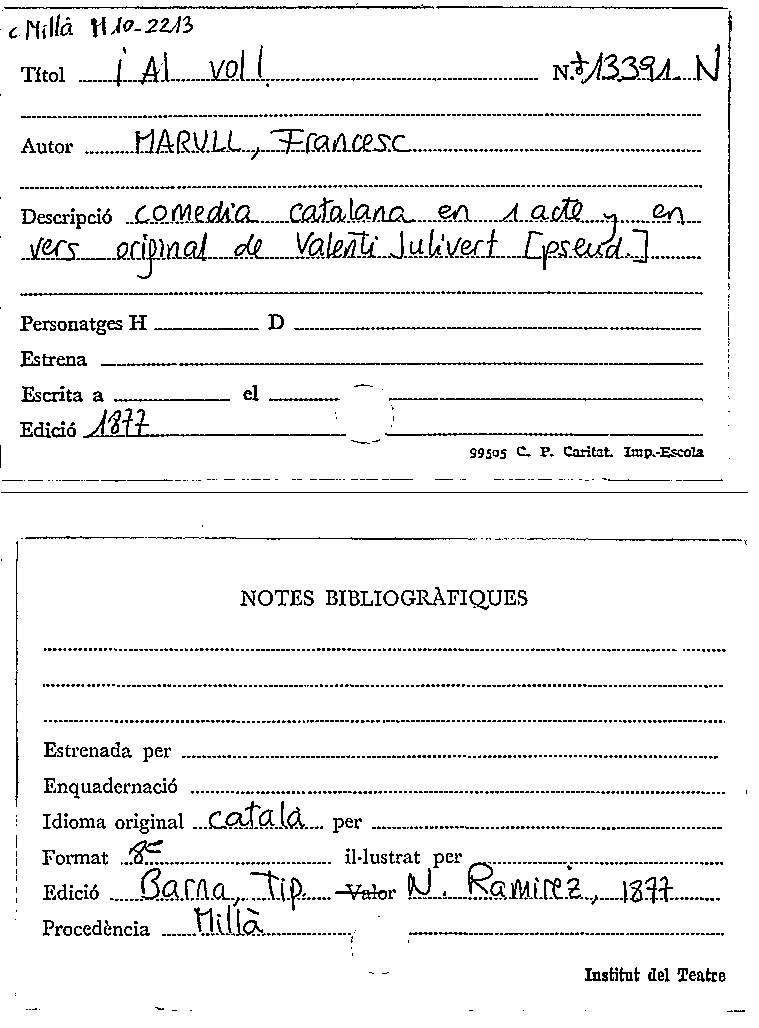 c Millà M 10-2213
Títol ¡Al vol! N.º 13391 N
Autor MARULL, Francesc
Descripció comedia catalana en 1 acte y en
vers original de Valentí Julivert [pseud.]
Personatges H D
Estrena
Escrita a el
Edició 1877
99505 C. P. Caritat. Imp.-Escola
NOTES BIBLIOGRÀFIQUES
Estrenada per
Enquadernació
Idioma original català per
Format 8è il·lustrat per
Edició Barna, Tip. Valor N. Ramirez, 1877
Procedència Millà
Institut del Teatre